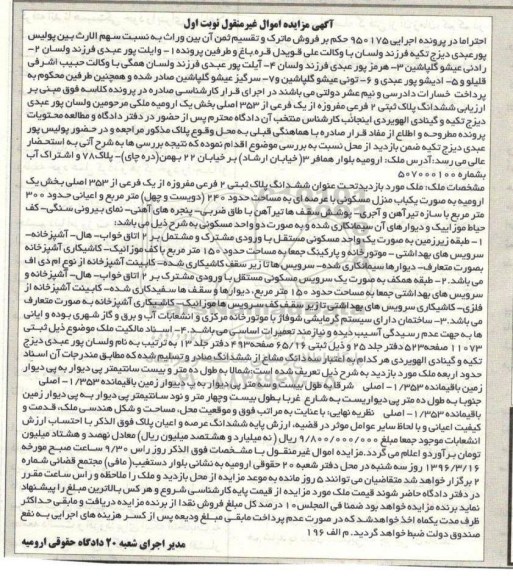 آگهی مزایده اموال غیرمنقول نوبت اول
احتراما در پرونده اجرایی ۹۵۰۱۷۵ حکم بر فروش ماترک و تقسیم ثمن آن بین وراث به نسبت سهم الارث بین پولیس
پور عبدی دیزج تکیه فرزند ولسان با وکالت علی قویدل قره باغ و طرفین پرونده ۱- وایلت پور عبدی فرزند ولسان ۲-
رادنی عیشو گلپاشین ۳- هرمز پور عبدی فرزند ولسان ۴- آیلت پور عبدی فرزند ولسان همگی با وکالت حبیب اشرفی
قلیلو و ۵- ادیشو پور عبدی و ۶- تونی عیشو گلپاشین و ۷- سرگیز عیشو گلپاشین صادر شده و همچنین طرفین محکوم به
پرداخت خسارات دادرسی و نیم عشر دولتی می باشند در اجرای قرار کارشناسی صادره در پرونده کلاسه فوق مبنی بر
ارزیابی ششدانگ پلاک ثبتی ۲ فرعی مفروزه از یک فرعی از ۳۵۳ اصلی بخش یک ارومیه ملکی مرحومین ولسان پور عبدی
دیزج تکیه و گینادی الهویردی اینجانب کارشناس منتخب آن دادگاه محترم پس از حضور در دفتر دادگاه و مطالعه محتویات
پرونده مطروحه و اطلاع از مفاد قرار صادره با هماهنگی قبلی به محل وقوع پلاک مذکور مراجعه و در حضور پولیس پور
عبدی دیزج تکیه ضمن بازدید از محل نسبت به بررسی موضوع اقدام نموده که نتیجه بررسی ها به شرح آتی به استحضار
عالی می رسد: آدرس ملک: ارومیه بلوار همافر ۳ (خیابان ارشاد) بر خیابان ۲۲ بهمن (دره چای)- پلاک ۷۸ و اشتراک آب
بشماره ۵۰۷۰۰۰۱۰۰
مشخصات ملک: ملک مورد بازدید تحت عنوان ششدانگ پلاک ثبتی ۲ فرعی مفروزه از یک فرعی از ۳۵۳ اصلی بخش یک
ارومیه به صورت یکباب منزل مسکونی با عرصه ای به مساحت حدود ۲۴۰ (دویست و چهل) متر مربع و اعیانی حدود ۳۰۰
متر مربع با سازه تیرآهن و آجری- پوشش سقف ها تیرآهن با طاق ضربی- پنجره های آهنی- نمای بیرونی سنگی- کف
حیاط موزاییک و دیوارهای آن سیمانکاری شده و به صورت دو واحد مسکونی به شرح ذیل می باشد:
۱- طبقه زیرزمین به صورت یک واحد مسکونی مستقل با ورودی مشترک و مشتمل بر ۲ اتاق خواب- هال- آشپزخانه-
سرویس های بهداشتی - موتورخانه و پارکینگ جمعا به مساحت حدود ۱۵۰ متر مربع با کف موزائیک- کاشیکاری آشپزخانه
بصورت متعارف- دیوارها سیمانکاری شده- سرویس ها تا زیر سقف کاشیکاری شده- کابینت آشپزخانه از نوع ام دی اف
می باشد. ۲- طبقه همکف به صورت یک سرویس مسکونی مستقل با ورودی مشترک بر ۲ اتاق خواب- هال- آشپزخانه و
سرویس های بهداشتی جمعا به مساحت حدود ۱۵۰ متر مربع، دیوارها و سقف ها سفیدکاری شده- کابینت آشپزخانه از
فلزی- کاشیکاری سرویس های بهداشتی تا زیر سقف کف سرویس ها موزائیک- کاشیکاری آشپزخانه به صورت متعارف
می باشد. ۳- ساختمان دارای سیستم گرمایشی شوفاژ با موتورخانه مرکزی و انشعابات آب و برق و گاز شهری بوده و ایانی
ها به جهت عدم رسیدگی آسیب دیده و نیازمند تعمیرات اساسی می باشد. ۴- اسناد مالکیت ملک موضوع ذیل ثبتی
۱۱۰۷۳ صفحه ۵۲۳ دفتر جلد ۲۵ و ذیل ثبتی ۶۵/۲۶ صفحه ۴۹۱ دفتر جلد ۱۳ به ترتیب به نام ولسان پور عبدی دیزج
تکیه و گینادی الهویردی هر کدام به اعتبار سه دانگ مشاع از ششدانگ صادر و تسلیم شده که مطابق مندرجات آن اسناد
حدود اربعه ملک مورد بازدید به شرح ذیل تعریف شده است: شمالا به طول ده متر و بیست سانتیمتر پی دیوار به پی دیوار
زمین باقیمانده ۱/۳۵۳- اصلی شرقا به طول بیست و سه متر پی دیوار به پی دیوار زمین باقیمانده ۱/۳۵۳- اصلی
جنوبا به طول ده متر پی دیواریست به شارع غربا بطول بیست وچهار متر و نود سانتیمتر پی دیوار به پی دیوار زمین
باقیمانده ۱/۳۵۳- اصلی نظریه نهایی: با عنایت به مراتب فوق و موقعیت محل، مساحت و شکل هندسی ملک، قدمت و
کیفیت اعیانی و با لحاظ سایر عوامل موثر در قضیه، ارزش پایه ششدانگ عرصه و اعیان پلاک فوق الذکر با احتساب ارزش
انشعابات موجود جمعا مبلغ ۹/۸۰۰/۰۰۰/۰۰۰ ریال (نه میلیارد و هشتصد میلیون ریال) معادل نهصد و هشتاد میلیون
تومان برآورد و اعلام می گردد. مزایده اموال غیرمنقول با مشخصات فوق الذکر روز راس ۹/۳۰ ساعت صبح مورخه
۱۳۹۶/۳/۱۶ روز سه شنبه در محل دفتر شعبه ۲۰ حقوقی ارومیه به نشانی بلوار دستغیب (مافی) مجتمع قضائی شماره
۲ برگزار خواهد شد متقاضیان می توانند ۵ روز مانده به موعد مزایده از محل بازدید و ملک را ملاحظه و راس ساعت مقرر
در دفتر دادگاه حاضر شوند قیمت ملک مورد مزایده از قیمت پایه کارشناسی شروع و هر کس بالاترین مبلغ را پیشنهاد
نماید برنده مزایده خواهد بود ضمنا فی المجلس ۱۰ درصد کل مبلغ فروش نقدا از برنده مزایده دریافت و مابقی حداکثر
ظرف مدت یکماه اخذ خواهد شد که در صورت عدم پرداخت مابقی مبلغ ودیعه پس از کسر هزینه های اجرایی به نفع
صندوق دولت ضبط خواهد گردید. م الف ۱۹۶
مدیر اجرای شعبه ۲۰ دادگاه حقوقی ارومیه